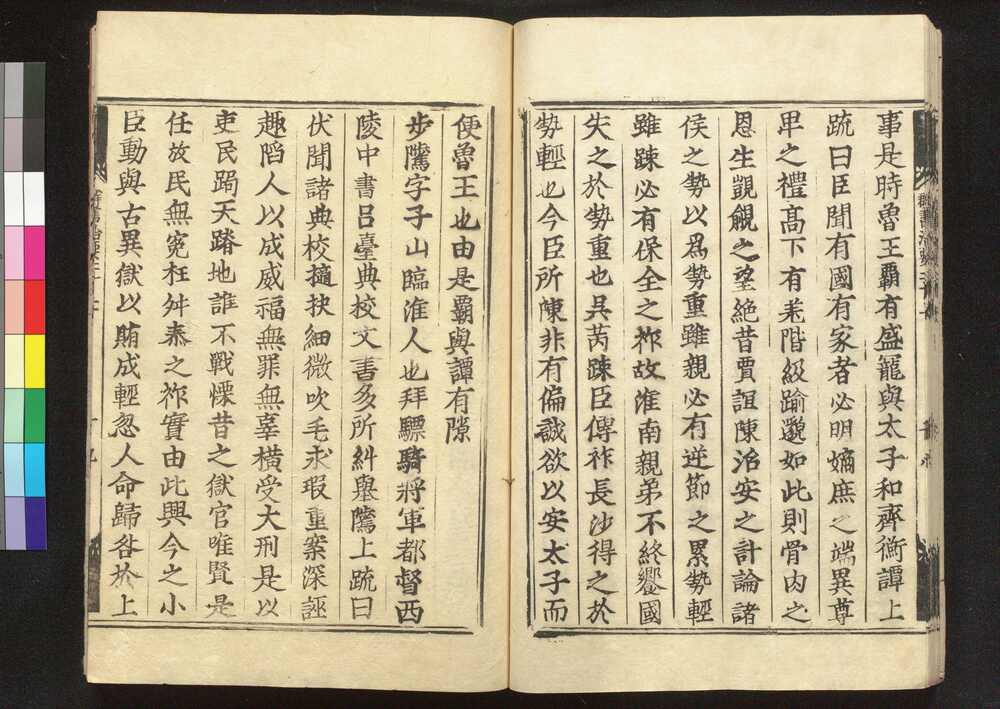 事是時魯王霸有盛寵與太子和齊衡譚上
疏曰臣聞有國有家者必明嫡庶之端異尊
卑之禮髙下有差階級踰邈如此則骨肉之
恩生覬覦之望絶昔賈誼陳治安之計論諸
侯之勢以爲勢重雖親必有逆節之累勢輕
雖踈必有保全之祚故淮南親弟不終饗國
失之於勢重也吴芮踈臣傳祚長沙得之於
勢輕也今臣所陳非有偏誠欲以安太子而
便魯王也由是霸與譚有隙
步騭字子山臨淮人也拜驃騎將軍都督西
陵中書吕臺典校文書多所糾舉騭上疏曰
伏聞諸典校擿抉細微吹毛求瑕重案深誣
趣陷人以成威福無罪無辜横受大刑是以
吏民跼天蹐地誰不戰慄昔之獄官唯賢是
任故民無寃枉升泰之祚實由此興今之小
臣動與古異獄以賄成輕忽人命歸咎於上